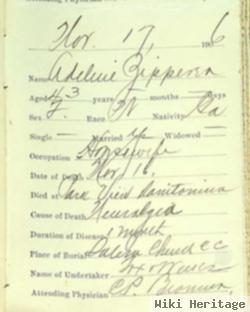 Attending Physician
Nov. 17, 1906
Name Adeline Zipperer
Aged 43 years — months — days
Sex F. Race W Nativity Ga
Single — Married yes Widowed —
Occupation Housewife
Date of Death Nov. 16,
Died at Park View Sanitorium
Cause of Death Neuralgia
Duration of Disease 1 month
Place of Burial Church
Name of Undertaker
Attending Physician
Wiki Heritage